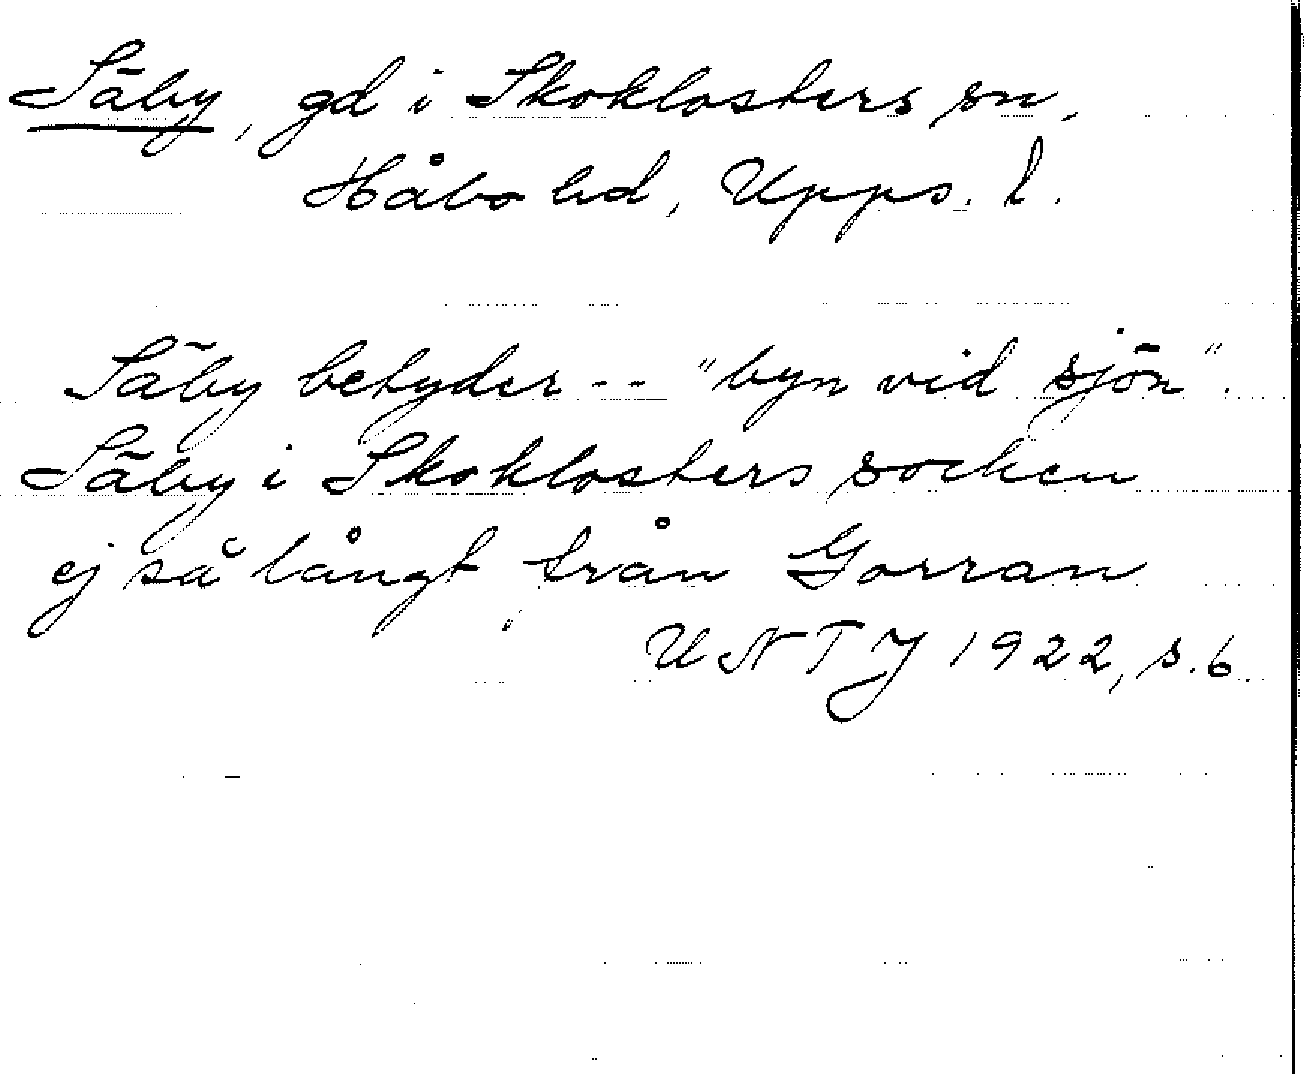 Säby, gd i Skoklosters sn,
Håbo hd, Upps. l.
Säby betyder -- "byn vid sjön".
Säby i Skoklosters socken
ej så långt från Gorran
UNTJ 1922, s. 6.